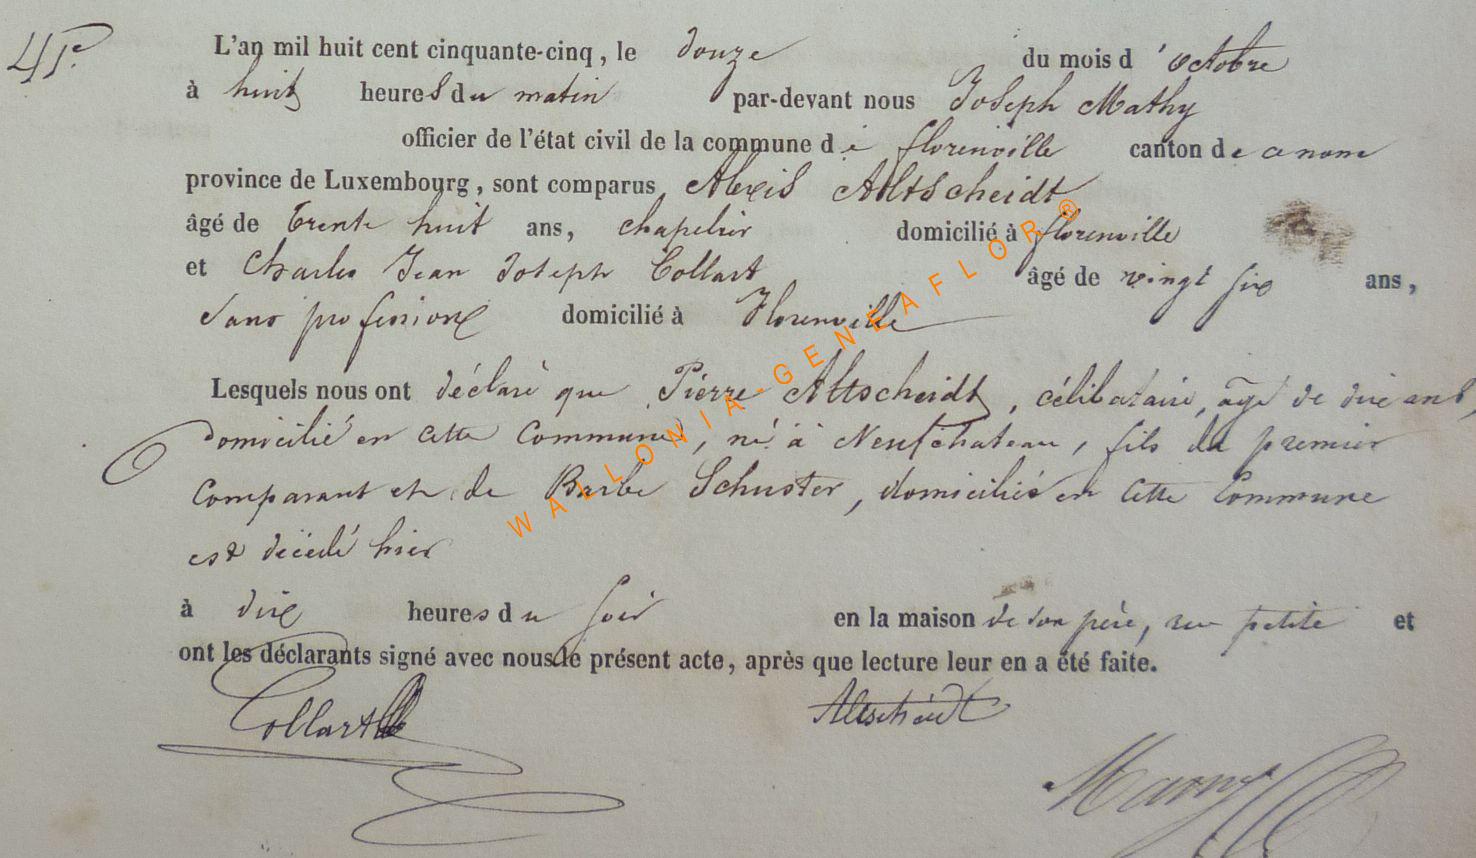 41e.
L'an mil huit cent cinquante-cinq, le douze du mois d'octobre
à huit heures du matin par-devant nous Joseph Mathy
officier de l'état civil de la commune de florenville canton de ce nom
province de Luxembourg, sont comparus Alexis Altscheidt
âgé de trente huit ans, chapelier domicilié à florenville
et Charles Jean Joseph Collart âgé de vingt six ans,
sans profession domicilié à Florenville
Lesquels nous ont déclaré que Pierre Altscheidt, célibataire, agé de dix ans,
domicilié en cette commune, né à Neufchateau, fils du premier
comparant et de Barbe Schuster, domiciliés en cette commune
est décédé hier
à dix heures du soir en la maison de son père, rue petite et
ont les déclarants signé avec nous le présent acte, après que lecture leur en a été faite.
Collart Altscheidt
Mathy
WALLONIA-GENEAFLOR®